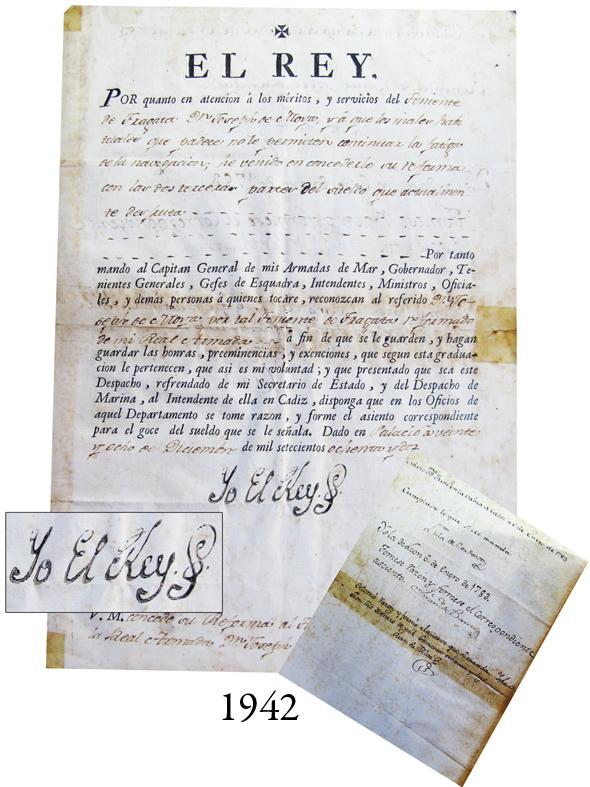 EL REY.
POR quanto en atencion á los méritos, y servicios del Teniente
de Fragata Dn. Joseph de Moya, y á que los males habi
tuales que padece no le permiten continuar las fatigas
de la navegacion; he venido en concederle su reforma
con las dos terceras partes del sueldo que actualmen
te disfruta
Por tanto
mando al Capitan General de mis Armadas de Mar, Gobernador, Te-
nientes Generales, Gefes de Esquadra, Intendentes, Ministros, Oficia-
les, y demás personas á quienes tocáre, reconozcan al referido Dn. Jo-
seph de Moya por tal Teniente de Fragata reformado
de mi Real Armada á fin de que se le guarden, y hagan
guardar las honras, preeminencias, y exenciones, que segun esta gradua-
cion le pertenecen, que asi es mi voluntad; y que presentado que sea este
Despacho, refrendado de mi Secretario de Estado, y del Despacho de
Marina, al Intendente de ella en Cadiz, disponga que en los Oficios de
aquel Departamento se tome razon, y forme el asiento correspondiente
para el goce del sueldo que se le señala. Dado en Palacio á veinte
y ocho de Diciembre de mil setecientos ochenta y dos
Yo El Rey.
Yo El Rey.
V. M. concede su Reforma al
la Real Armada Dn. Joseph
de Enero de 1783
Cumplase lo que S. M. manda.
Isla de Leon 6 de Enero de 1783.
Tomese razon y formese el Correspondiente
asiento.
1942